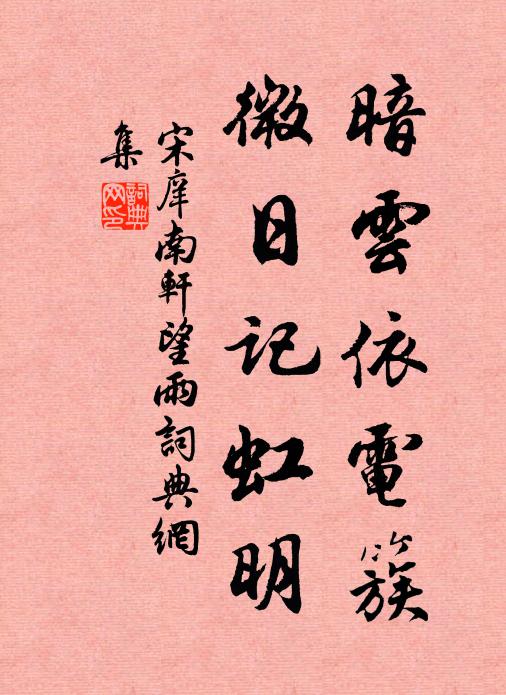 暗雲依電簇
微日記虹明
宋庠南軒望雨詞典網
集
詞典
网印